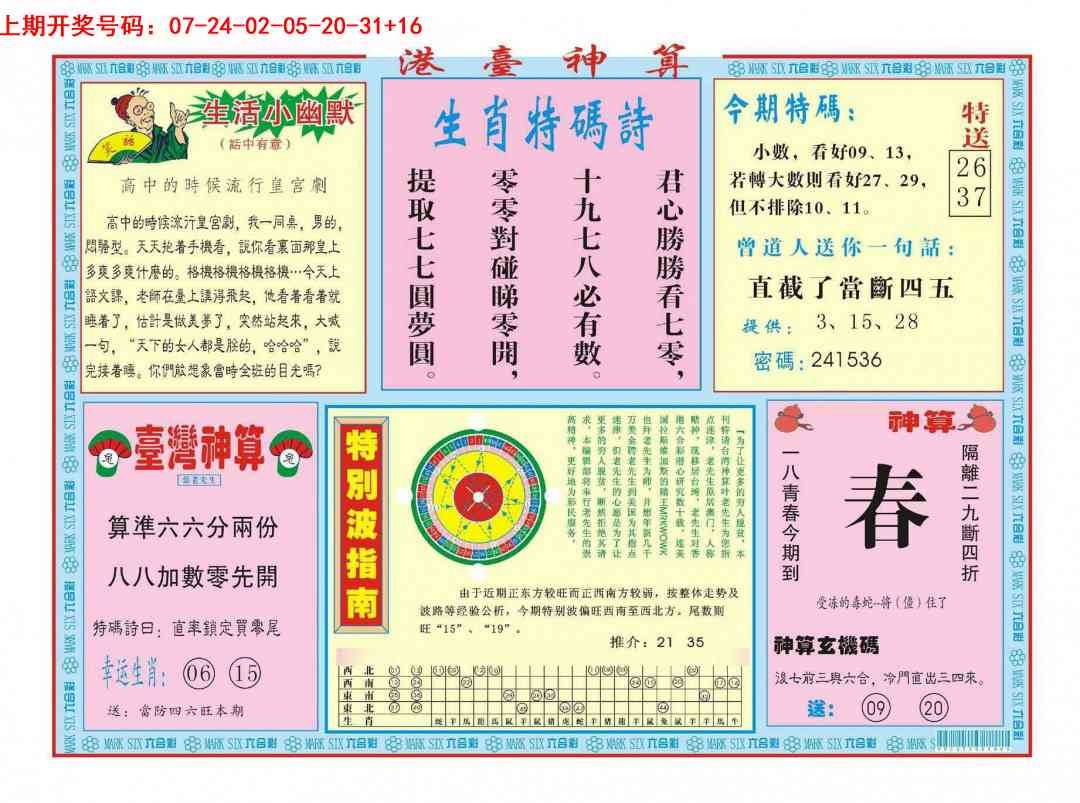 上期开奖号码：07-24-02-05-20-31+16
港臺神算
生活小幽默
（話中有意）
笑話
高中的時候流行皇宮劇
高中的時候流行皇宮劇，我一同桌，男的，
悶騷型。天天抱着手機看，説你看裏面那皇上
多爽多爽什麼的。格機格機格機格機…今天上
語文課，老師在臺上講得飛起，他看着看着就
睡着了，估計是做美夢了，突然站起來，大喊
一句，“天下的女人都是朕的，哈哈哈”，説
完接着睡。你們能想象當時全班的目光嗎？
生肖特碼詩
君心勝勝看七零，
十九七八必有數。
零零對碰睇零開，
提取七七圓夢圓。
今期特碼：
特送
26
37
小數，看好09、13，
若轉大數則看好27、29，
但不排除10、11。
曾道人送你一句話：
直截了當斷四五
提供：3、15、28
密碼：241536
臺灣神算
算準六六分兩份
八八加數零先開
特碼詩曰：直率鎖定買零尾
幸运生肖：06 15
送：當防四六旺本期
特別波指南
『为了让更多的穷人脱贫，本
刊特请台湾神算叶老先生为您指
点迷津，老先生原居澳门，人称
赌神，现移居台湾，老先生对香
港六合彩潜心研究数十载，连美
国拉斯维加斯的赌王MIYKWOWK
也拜老先生为师，并想年薪几千
万美金聘老先生到美国为其指点
迷津，但老先生的心愿是为了让
更多的穷人脱贫，断然拒绝其请
求，本编辑部将奉行老先生的崇
高精神，更好地为彩民服务。
由于近期正东方较旺而正西南方较弱，按整体走势及
波路等经验公析，今期特别波偏旺西南至西北方。尾数则
旺“15”、“19”。
推介：21 35
西北
西南
東南
東北
生肖
神算
隔離二九斷四折
春
一八青春今期到
受冻的毒蛇--將（僵）住了
神算玄機碼
滾七前三與六合，冷門直出三四來。
送： 09 20
MARK SIX 六合彩